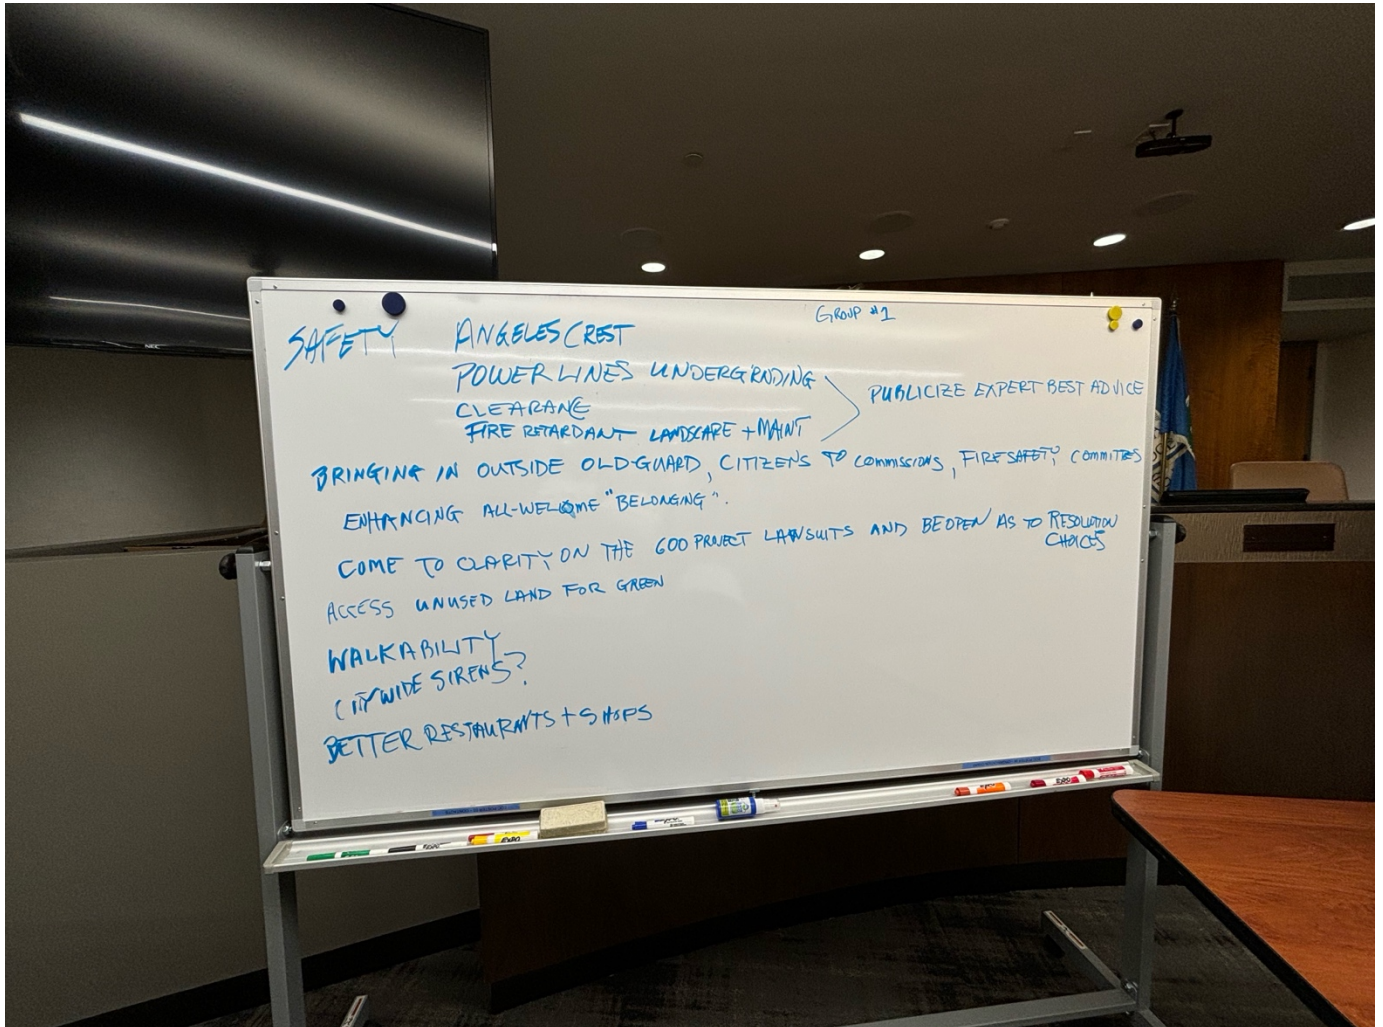 GROUP #1
SAFETY ANGELES CREST
POWERLINES UNDERGRNDING
PUBLICIZE EXPERT BEST ADVICE
CLEARANE
FIRE RETARDANT LANDSCAPE + MAINT
BRINGING IN OUTSIDE OLD-GUARD, CITIZENS TO COMMISSIONS, FIRE SAFETY COMMITTES
ENHANCING ALL-WELOME "BELONGING".
COME TO CLARITY ON THE 600 PROJECT LAWSUITS AND BE OPEN AS TO RESOLUTION
CHOICES
ACCESS UNUSED LAND FOR GREEN
WALKABILITY
CITYWIDE SIRENS?
BETTER RESTAURANTS + SHOPS
EXPO
EXPO